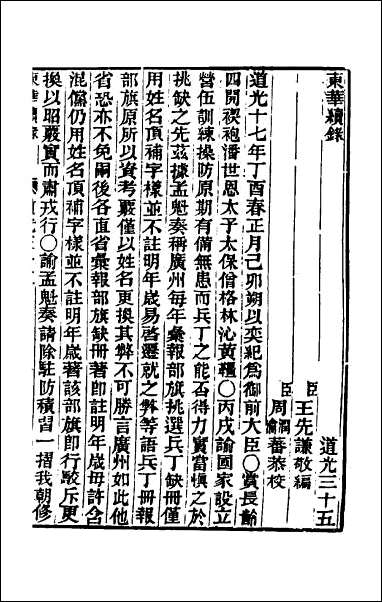 東華續錄
道光三十五
臣王先謙敬編
臣周潤蕃恭校
道光十七年丁酉春正月己卯朔以奕紀為御前大臣○賞長齡
四開禊袍潘世恩太子太保僧格林沁黃韁○丙戌諭國家設立
營伍訓練操防原期有備無患而兵丁之能否得力實當慎之於
挑缺之先茲據孟魁奏稱廣州每年彙報部旗挑選兵丁缺冊僅
用姓名頂補字樣並不註明年歲易啓遷就之弊等語兵丁冊報
部旗原所以資考覈僅以姓名更換其弊不可勝言廣州如此他
省恐亦不免嗣後各直省彙報部旗缺冊著即註明年歲毋許含
混儻仍用姓名頂補字樣並不註明年歲著該部旗即行駁斥更
換以昭覈實而肅戎行○諭孟魁奏請除駐防積習一摺我朝修
東華續錄